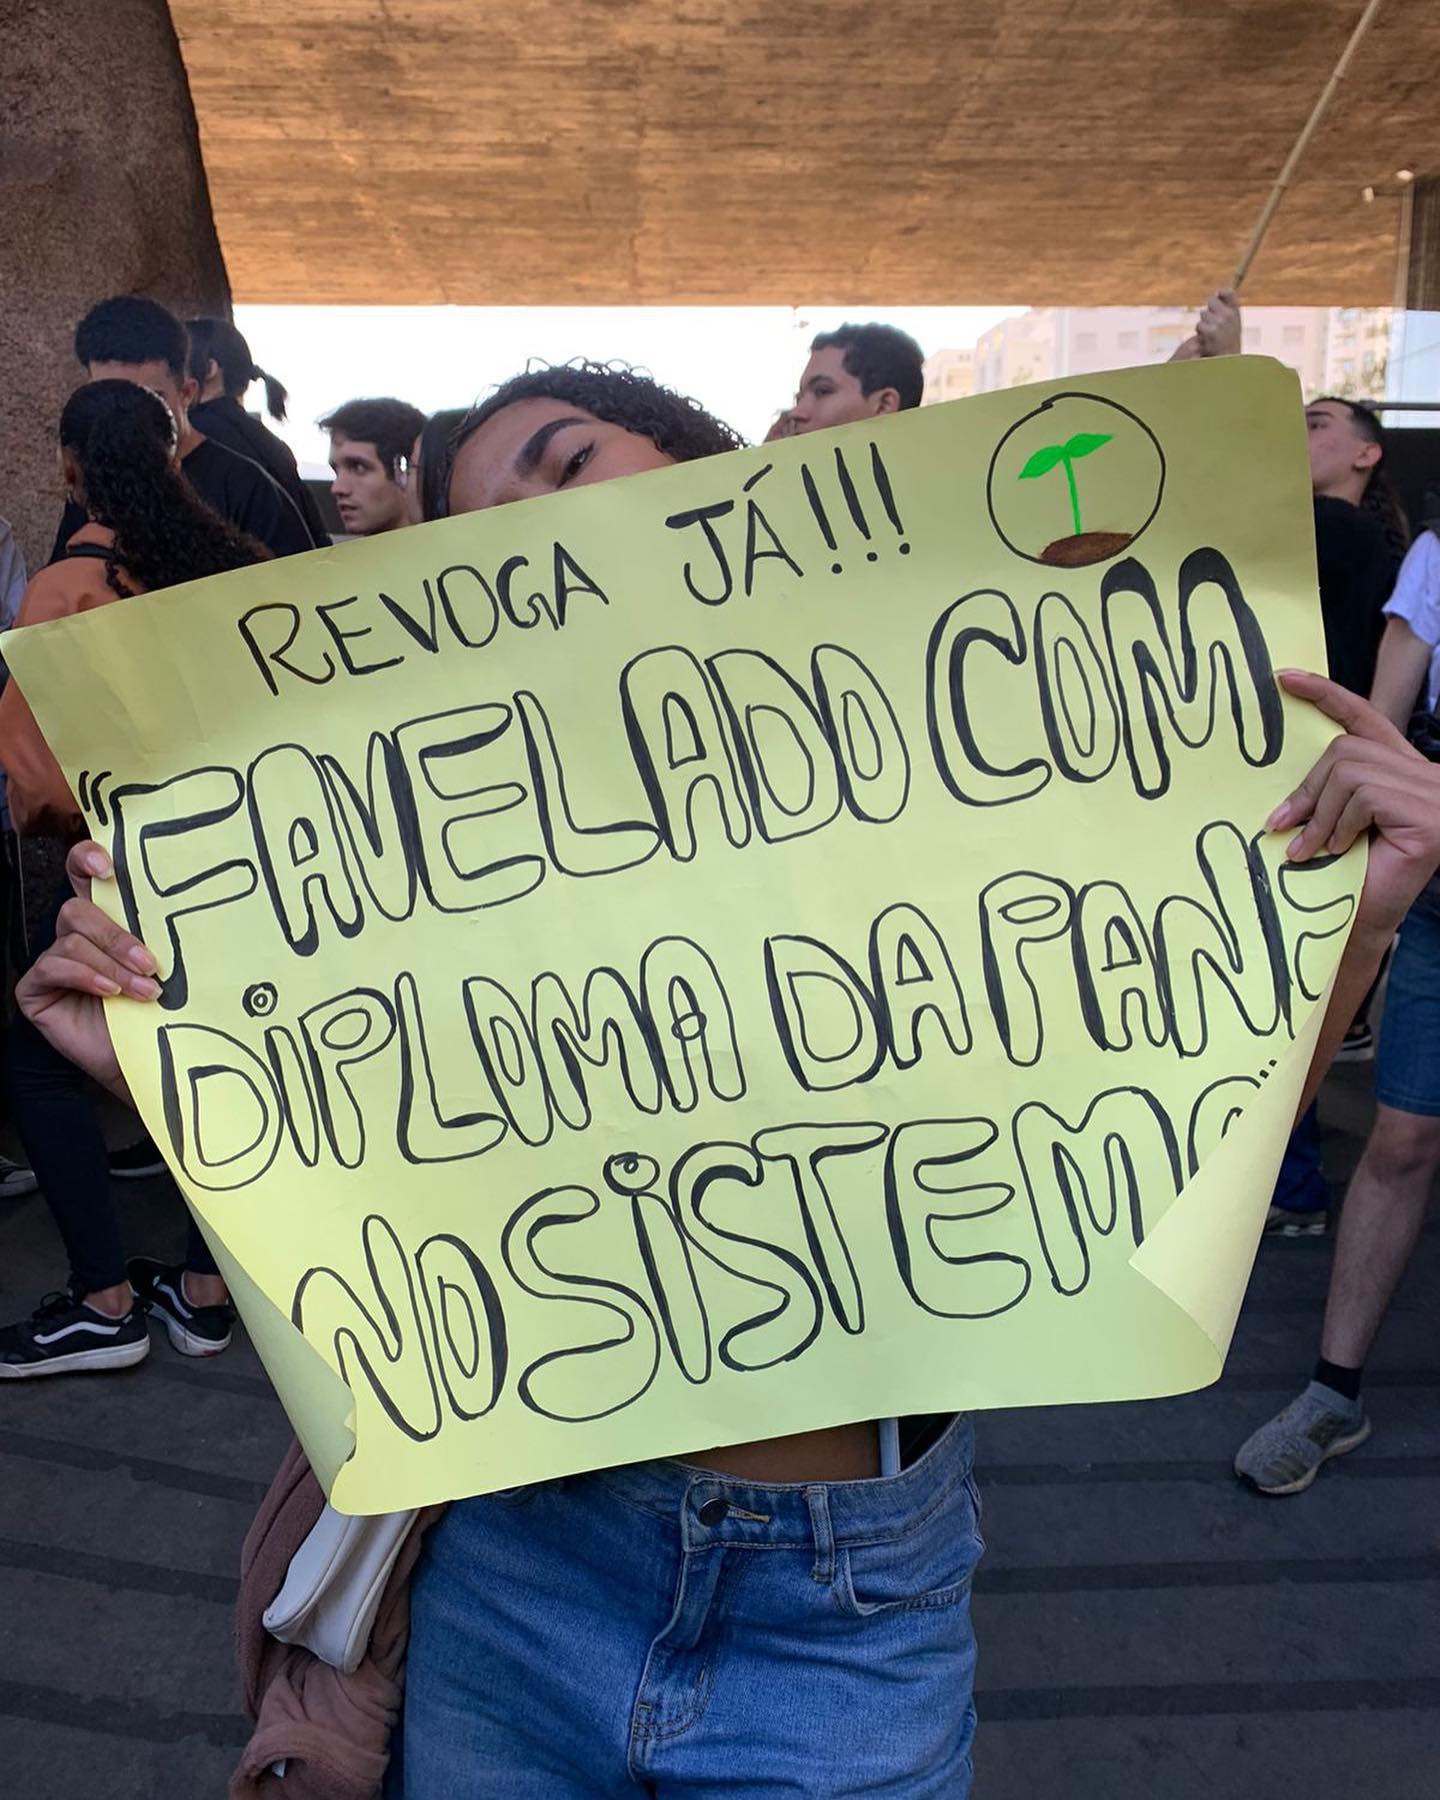 REVOGA JÁ!!!
"FAVELADO COM
DIPLOMA DA PANE
NO SISTEMA"